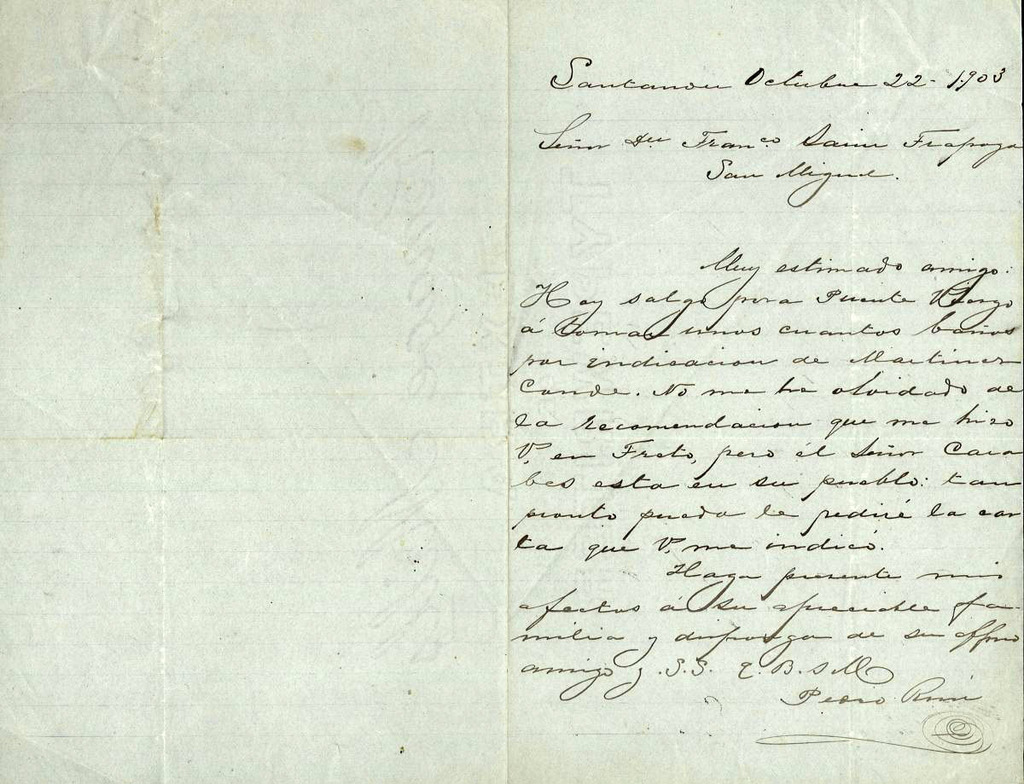 Santander Octubre 22 - 1903
Señor Dn Franco Sainz Trapaga
San Miguel.
Muy estimado amigo:
Hoy salgo para Puente Viesgo
á tomar unos cuantos baños
por indicacion de Martinez
Conde. No me he olvidado de
la recomendacion que me hizo
V. en Treto, pero él Señor Cara
bes esta en su pueblo: tan
pronto pueda le pediré la car
ta que V. me indicó.
Haga presente mis
afectos á su apreciable fa-
milia y disponga de su affmo
amigo y S.S. Q.B.S.M
Pedro